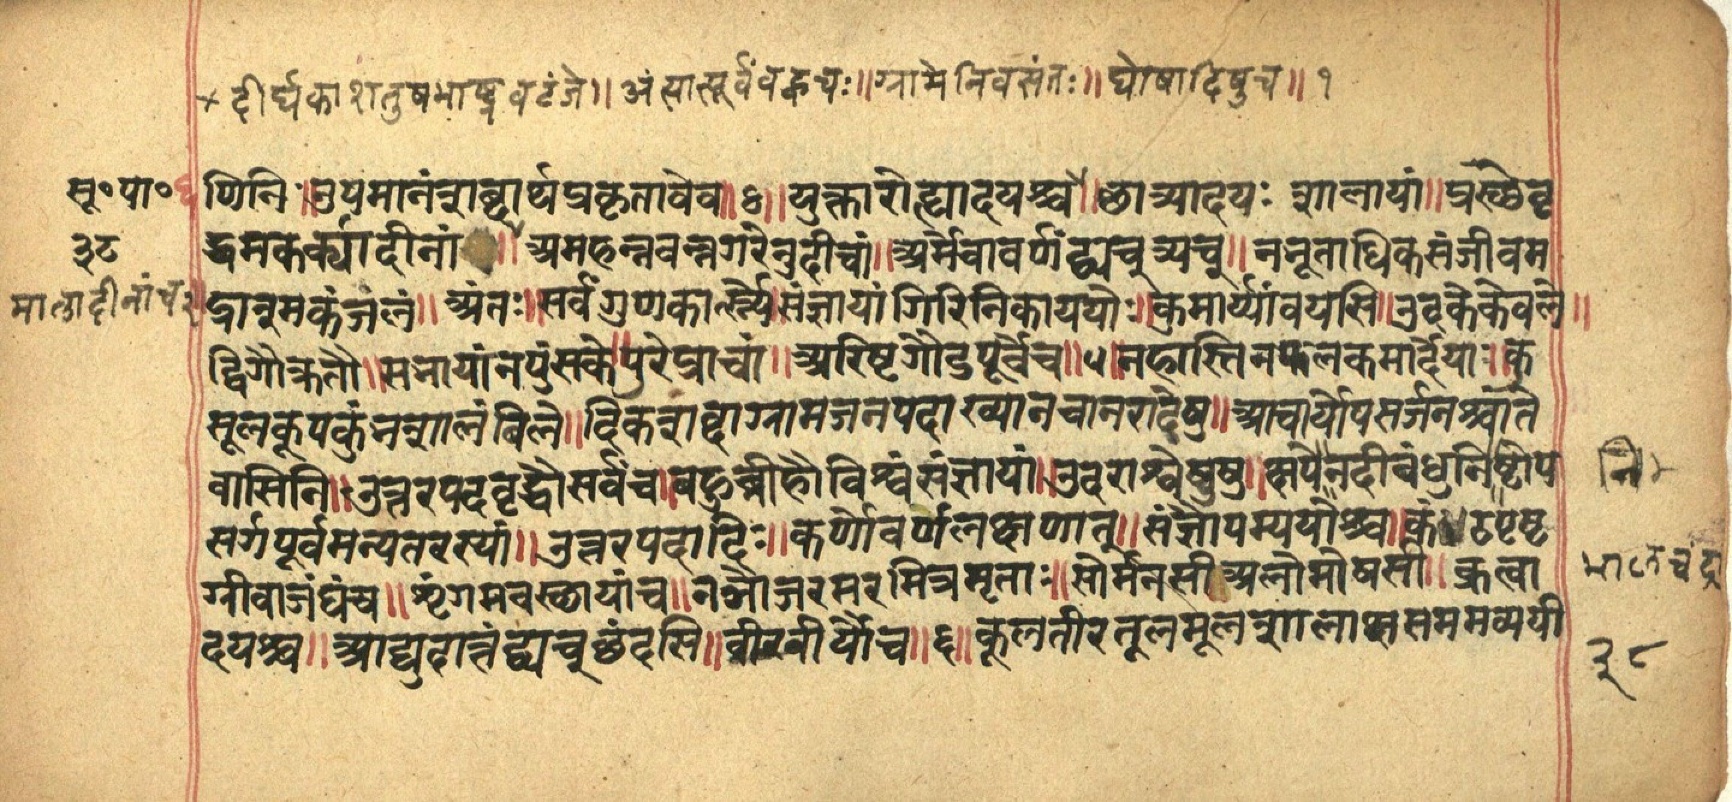 दीर्घकाशतुषभ्राष्ट्रवटंजे॥ अंत्यात्पूर्वंबह्वचः॥ ग्रामेनिवसंतः॥ घोषादिषुच॥ १
सू॰पा॰६ णिनि॥ उपमानंशब्दार्थप्रकृतावेव॥४॥ युक्तारोह्यादयश्च॥ छात्र्यादयः शालायां॥ प्रस्छेवृ
३८ द्धमकर्क्यादीनां॥ अमहन्नवन्नगरेनुदीचां॥ अर्मेचावर्णंद्व्यच्त्र्यच्॥ नभूताधिकसंजीवम
मालादीनांच२ द्राश्मकंजलं॥ अंतः॥ सर्वंगुणकार्त्स्न्ये॥ संज्ञायांगिरिनिकाययोः॥ कुमार्य्यांवयसि॥ उदकेकेवले॥
द्विगौक्रतौ॥ सभायांनपुंसके॥ पुरेप्राचां॥ अरिष्टगौडपूर्वेच॥५॥ नहास्तिनफलकमार्देयाः॥ कु
सूलकूपकुंभशालंबिले॥ दिक्शब्दाग्रामजनपदाख्यानचानराटेषु॥ आचार्योपसर्जनश्चांते
वासिनि॥ उत्तरपदवृद्धौसर्वंच॥ बहुव्रीहौविश्वंसंज्ञायां॥ उदराश्वेषुषु॥ क्षेपे॥ नदीबंधुनिष्टोप
नि
सर्गपूर्वमन्यतरस्यां॥ उत्तरपदादिः॥ कर्णोवर्णलक्षणात्॥ संज्ञौपम्ययोश्च॥ कंठपृष्ट
ग्रीवाजंघंच॥ शृंगमवस्छायांच॥ नञोजरमरमित्रमृताः॥ सोर्मनसीअलोमोषसी॥ क्रत्वा
दयश्च॥ आद्युदात्तंद्व्यच्छंदसि॥ वीरवीर्यौच॥६॥ कूलतीरतूलमूलशालाक्षसममव्ययी
३८